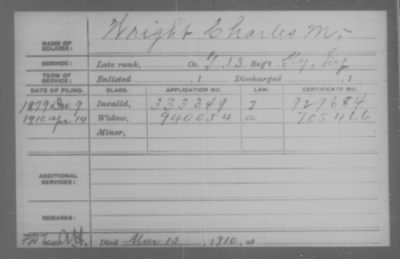 NAME OF SOLDIER: Wright Charles M.
SERVICE: Late rank, Co. G. 13 Reg't Ky. Inf
TERM OF SERVICE: Enlisted , 1 Discharged , 1
DATE OF FILING. CLASS. APPLICATION NO. LAW. CERTIFICATE NO.
1879 Dec. 9 Invalid, 333349
1910 Apr. 14 Widow, 940054 a 705416
Minor,
ADDITIONAL SERVICES:
REMARKS:
Died Mar 13, 1910, at